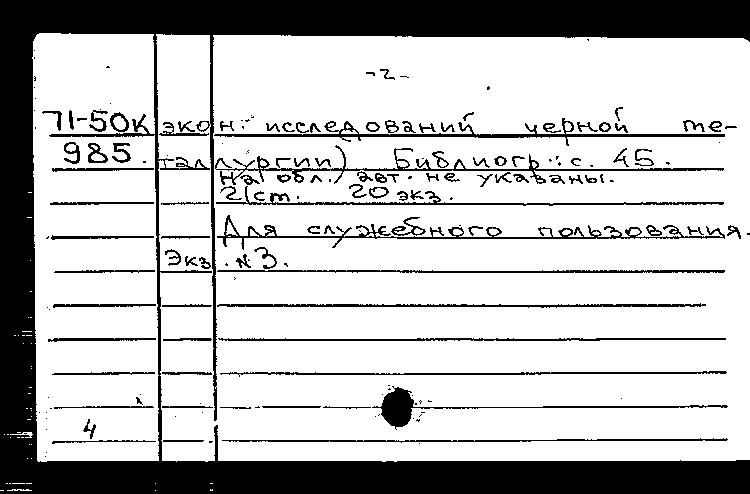 -2-
71-50к экон. исследований черной ме-
985. таллургии) Библиогр.: с. 45.
На обл. авт. не указаны.
21 см. 20 экз.
Для служебного пользования.
Экз. №3.
4